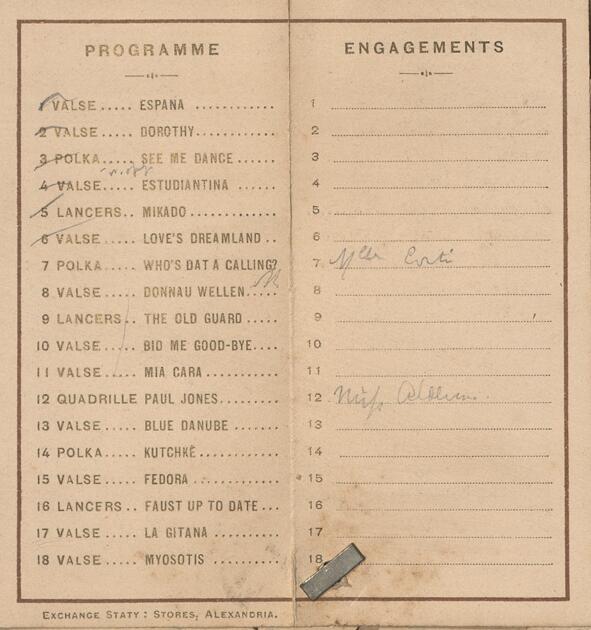 PROGRAMME
1 VALSE..... ESPANA ............
2 VALSE..... DOROTHY............
3 POLKA..... SEE ME DANCE ......
4 VALSE..... ESTUDIANTINA ......
5 LANCERS.. MIKADO.............
6 VALSE..... LOVE'S DREAMLAND ..
7 POLKA..... WHO'S DAT A CALLING?
8 VALSE..... DONNAU WELLEN.....
9 LANCERS.. THE OLD GUARD .....
10 VALSE..... BID ME GOOD-BYE....
11 VALSE..... MIA CARA ...........
12 QUADRILLE PAUL JONES.........
13 VALSE..... BLUE DANUBE .......
14 POLKA..... KUTCHKÉ ............
15 VALSE..... FEDORA .............
16 LANCERS.. FAUST UP TO DATE...
17 VALSE..... LA GITANA ..........
18 VALSE..... MYOSOTIS ...........
EXCHANGE STATY: STORES, ALEXANDRIA.
ENGAGEMENTS
1
2
3
4
5
6
7 Mlle
8
9
10
11
12 Miss
13
14
15
16
17
18